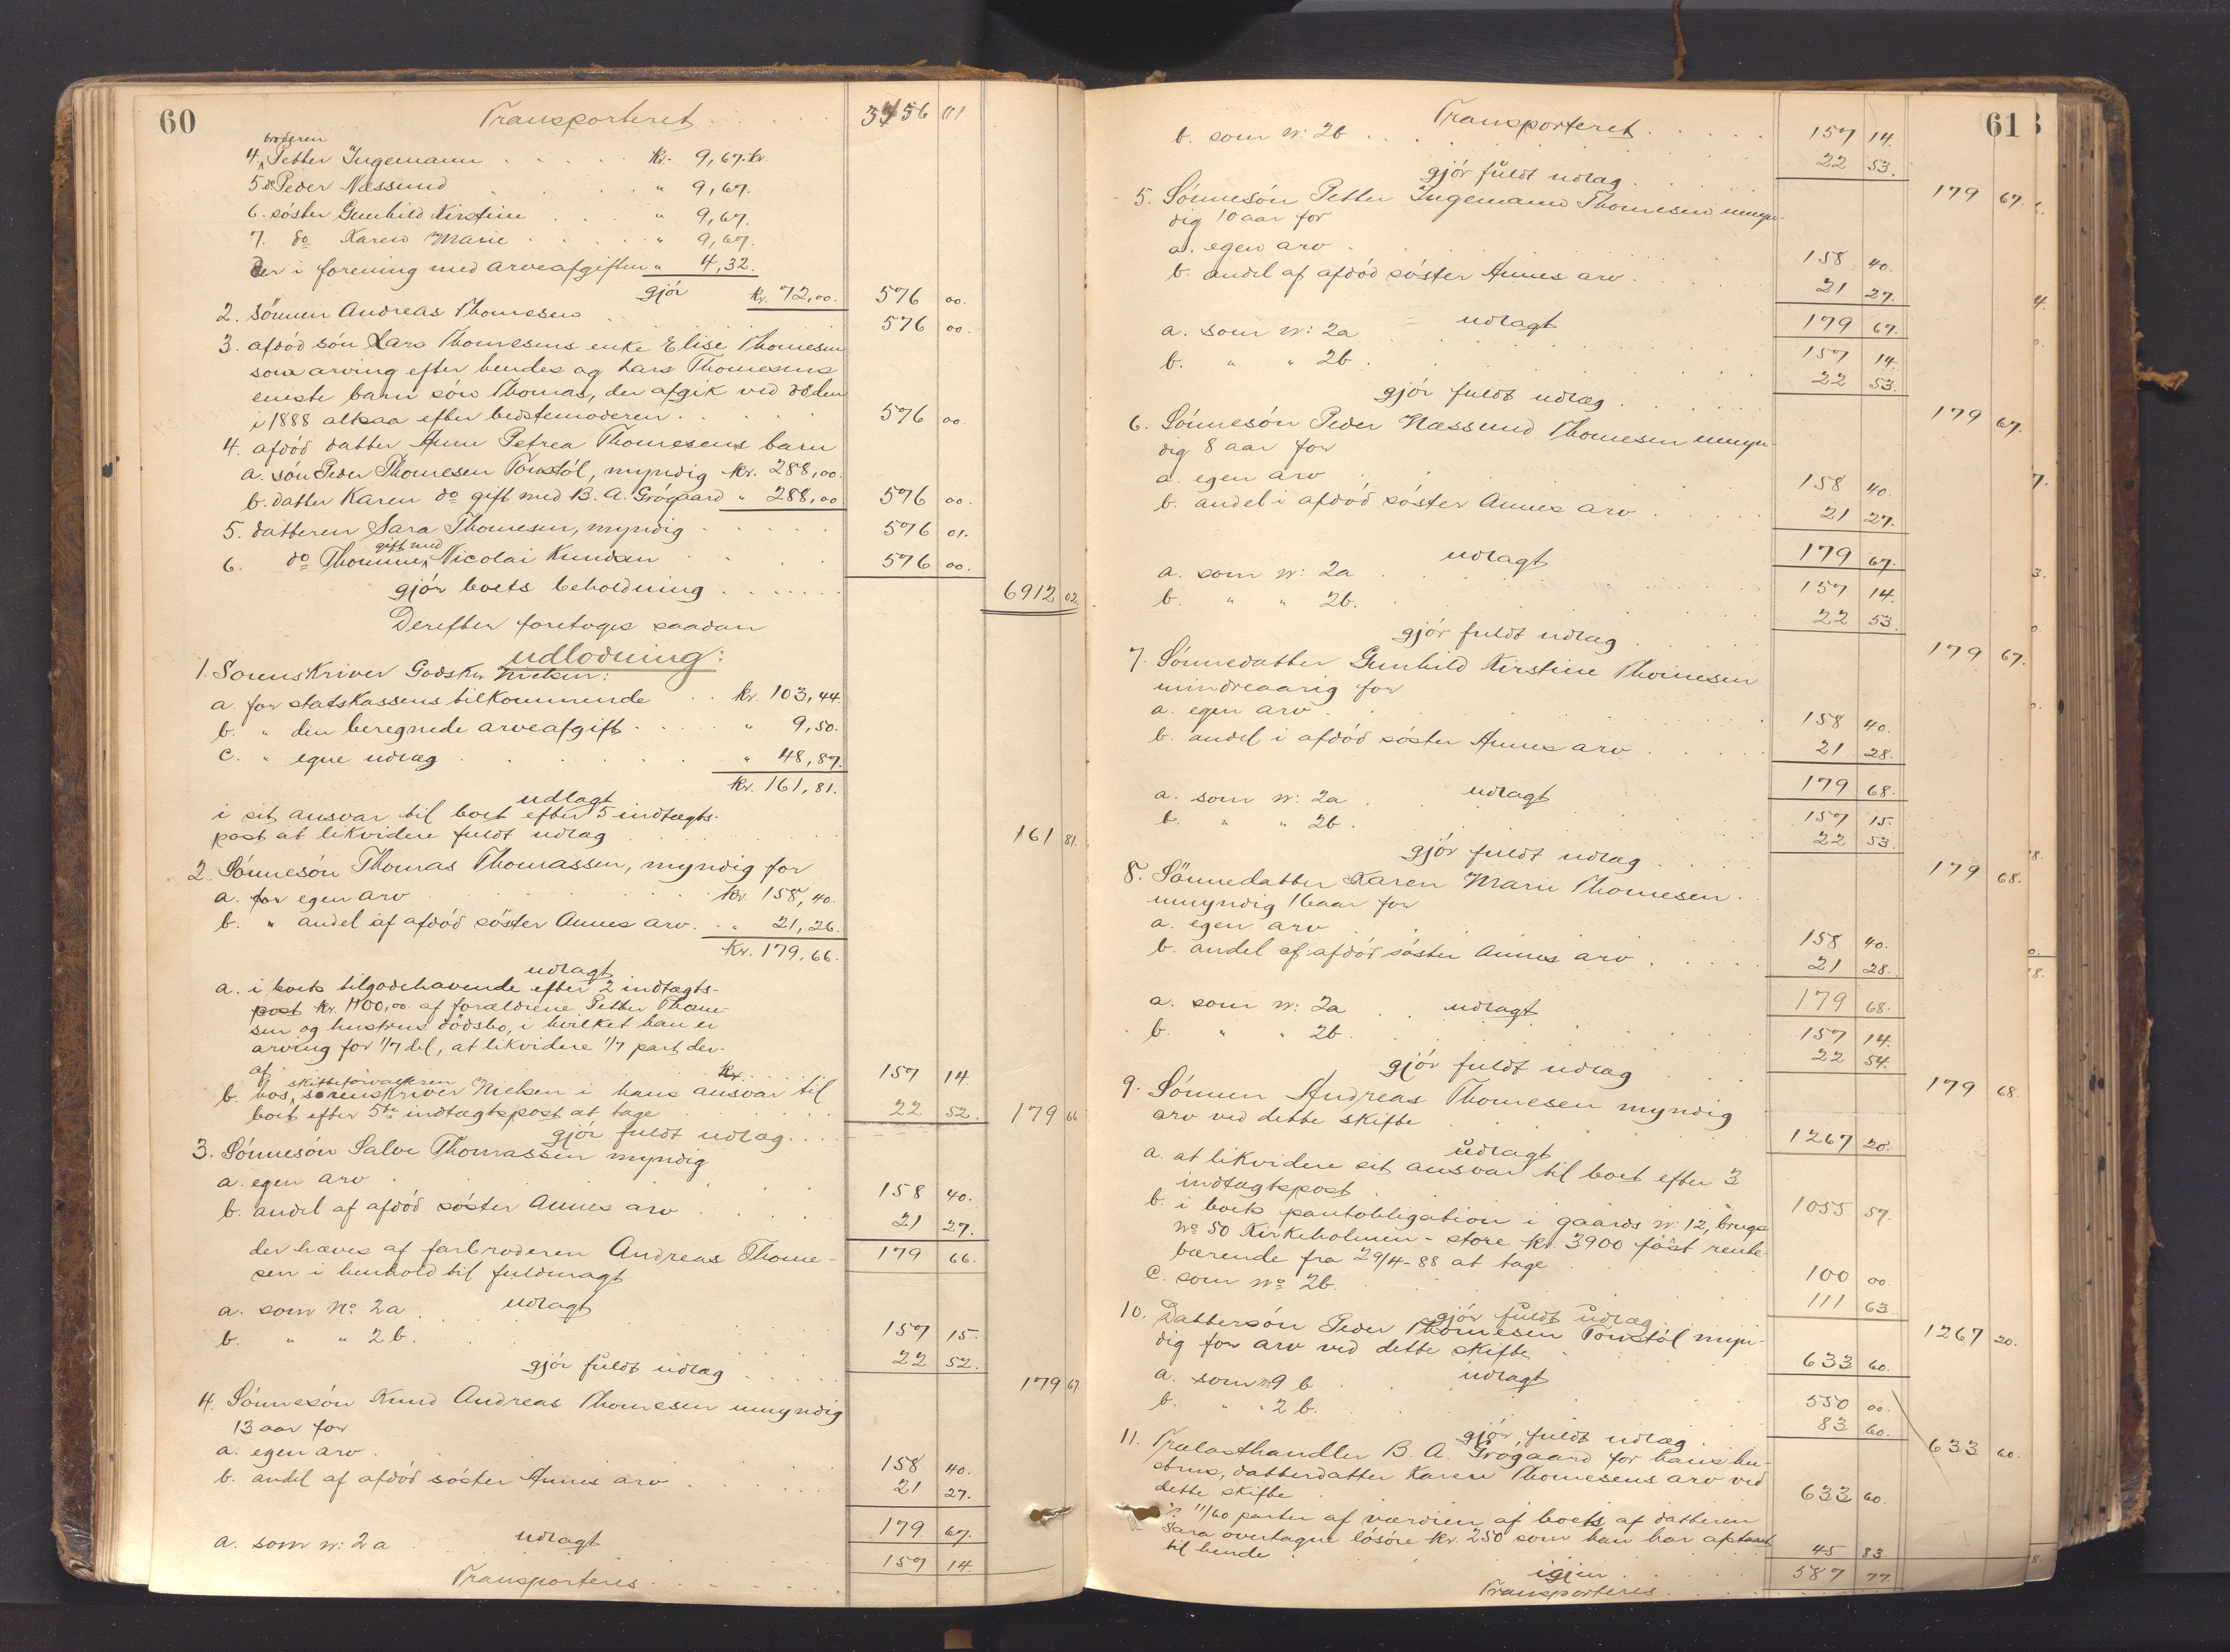 60
Transporteret . . . . . 3456 01
broderen
4. Petter Ingemann . . . . . kr. 9,67. kr.
5. do Peder Næssund . . . . " 9,67.
6. söster Gunhild Kirstine . . . " 9,67.
7. do Karen Marie . . . . . " 9,67.
der i forening med arveafgiften " 4,32.
gjör kr. 72,00. 576 00.
2. sönnen Andreas Thomesen . . . . 576 00.
3. afdöd sön Lars Thomesens enke Elise Thomesen
som arving efter hendes og Lars Thomesens
eneste barn sön Thomas, der afgik ved döden
i 1888 altsaa efter bedstemoderen . . . . . 576 00.
4. afdöd datter Anne Petrea Thomesens barn
a. sön Peder Thomesen Tonstöl, myndig kr. 288,00.
b. datter Karen do gift med B. A. Grögaard " 288,00 576 00.
5. datteren Sara Thomesen, myndig . . . . . 576 01.
gift med
6. do Thomine Nicolai Knudsen . . . . 576 00.
gjör boets beholdning . . . . . . . 6912 02.
Derefter foretoges saadan
udlodning:
1. Sorenskriver Godske Nielsen:
a. for statskassens tilkommende . . kr. 103,44.
b. " den beregnede arveafgift . . . . . " 9,50.
c. " egne udlæg . . . . . . " 48,87.
kr. 161,81.
udlagt
i sit ansvar til boet efter 5 indtægts-
post at likvidere fuldt udlæg . . . . . 161 81.
2. Sönnesön Thomas Thomassen, myndig for
a. for egen arv . . . . . . kr. 158,40.
b. " andel af afdöd söster Annes arv. . " 21,26.
Kr. 179,66.
udlagt
a. i boets tilgodehavende efter 2 indtægts-
post kr. 1100,00 af forældrene Petter Thome-
sen og hustrus dödsbo, i hvilket han er
arving for 1/7 del, at likvidere 1/7 part der-
af . . . . . kr. . . . 157 14.
skifteforvalteren
b. hos sorenskriver Nielsen i hans ansvar til
boet efter 5te indtægtspost at tage . . . . . 22 52. 179 66
gjör fuldt udlæg. . . .
3. Sönnesön Salve Thomassen myndig
a. egen arv . . . . . . 158 40.
b. andel af afdöd söster Annes arv . . . . . 21 27.
der hæves af farbroderen Andreas Thome- 179 66.
sen i henhold til fuldmagt
udlagt
a. som No 2a . . . . . 157 15.
b. " " 2b. . . . . . 22 52.
gjör fuldt udlæg . . . . . 179 67.
4. Sönnesön Knud Andreas Thomesen umyndig
13 aar for
a. egen arv . . . . . . 158 40.
b. andel af afdöd söster Annes arv . . . . . . 21 27.
179 67.
udlagt
a. som n: 2a . . . . . 157 14.
Transporteres . . . . . . .
61
Transporteret . . . . . 157 14.
b. som n: 2b . . . . . . 22 53.
gjör fuldt udlæg . . . . . 179 67.
5. Sönnesön Petter Ingemann Thomesen umyn-
dig 10 aar for
a. egen arv . . . . . . 158 40.
b. andel af afdöd söster Annes arv . . . . . 21 27.
179 67.
udlagt
a. som n: 2a . . . . . 157 14.
b. " " 2b . . . . . . 22 53.
gjör fuldt udlæg . . . . . 179 67.
6. Sönnesön Peder Næssund Thomesen umyn-
dig 8 aar for
a. egen arv . . . . . . 158 40.
b. andel i afdöd söster Annes arv . . . . . 21 27.
179 67.
udlagt
a. som n: 2a . . . . . 157 14.
b. " " 2b. . . . . . 22 53.
gjör fuldt udlæg . . . . . 179 67.
7. Sönnedatter Gunhild Kirstine Thomesen
mindreaarig for
a. egen arv . . . . . . 158 40.
b. andel i afdöd söster Annes arv . . . . . 21 28.
179 68.
udlagt
a. som n: 2a . . . . . 157 15.
b. " " 2b . . . . . 22 53.
gjör fuldt udlæg . . . . 179 68.
8. Sönnedatter Karen Marie Thomesen .
umyndig 16 aar for
a. egen arv . . . . . 158 40.
b. andel af afdöd söster Annes arv . . . . . 21 28.
179 68.
udlagt
a. som n: 2a . . . . . 157 14.
b. " " 2b . . . . . 22 54.
gjör fuldt udlæg . . . . 179 68.
9. Sönnen Andreas Thomesen myndig
arv ved dette skifte . . . . . 1267 20.
udlagt
a. at likvidere sit ansvar til boet efter 3
indtægtspost . . . . . 1055 57.
b. i boets pantobligation i gaards n: 12, brugs
No 50 Kirkeholmen - store kr. 3900 först rente-
bærende fra 29/4-88 at tage . . . . 100 00.
c. som No 2b . . . . . . 111 63.
gjör fuldt udlæg . . . . 1267 20.
10. Dattersön Peder Thomesen Tonstöl myn-
dig for arv ved dette skifte . . . . 633 60.
udlagt
a. som n: 9 b . . . . . 550 00.
b. " " 2 b. . . . . . 83 60.
gjör fuldt udlæg . . . . 633 60.
11. Trælasthandler B. A. Grögaard for hans hu-
strus, datterdatter Karen Thomesens arv ved
dette skifte . . . . . . 633 60.
÷ 11/60 parter af værdien af boets af datteren
Sara overtagne lösöre kr. 250 som han har aftaaet
til hende . . . . . . 45 83.
igjen . . . . . 587 77.
Transporteres . . . . .